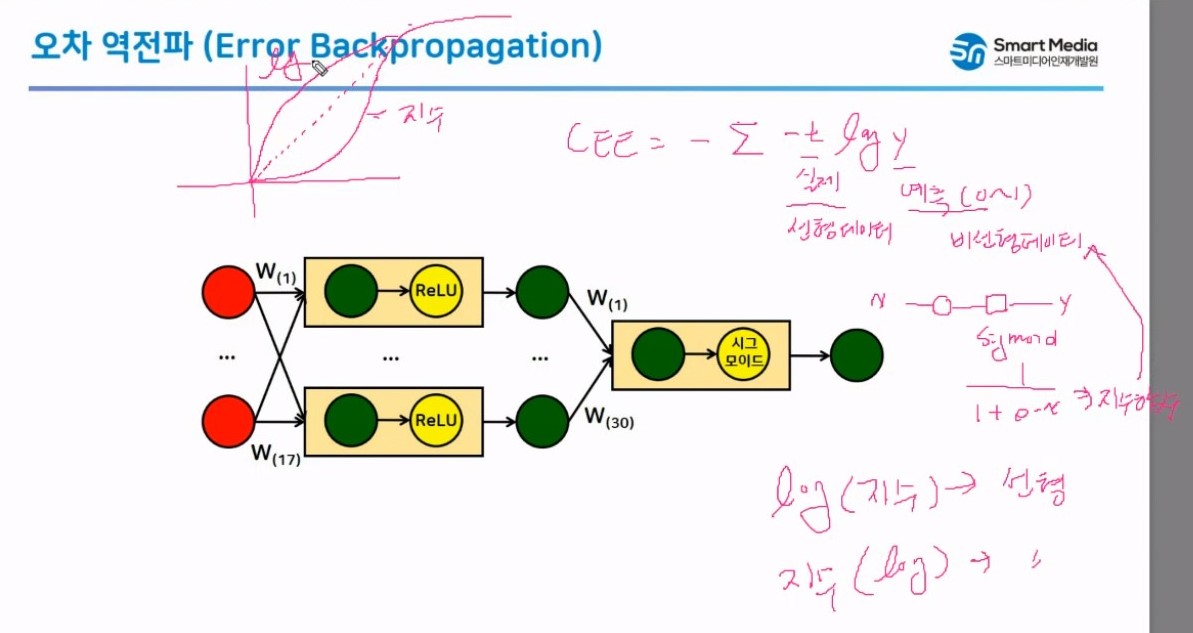 오차 역전파 (Error Backpropagation)
Smart Media
스마트미디어인재개발원
log
지수
CEE = - Σ -t log y
실제
예측 (0~1)
선형데이터
비선형데이터
W(1)
ReLU
W(1)
시그
모이드
...
...
...
ReLU
W(17)
W(30)
x
y
Sigmoid
1
1 + e-x → 지수함수
log (지수) → 선형
지수 (log) → 〃